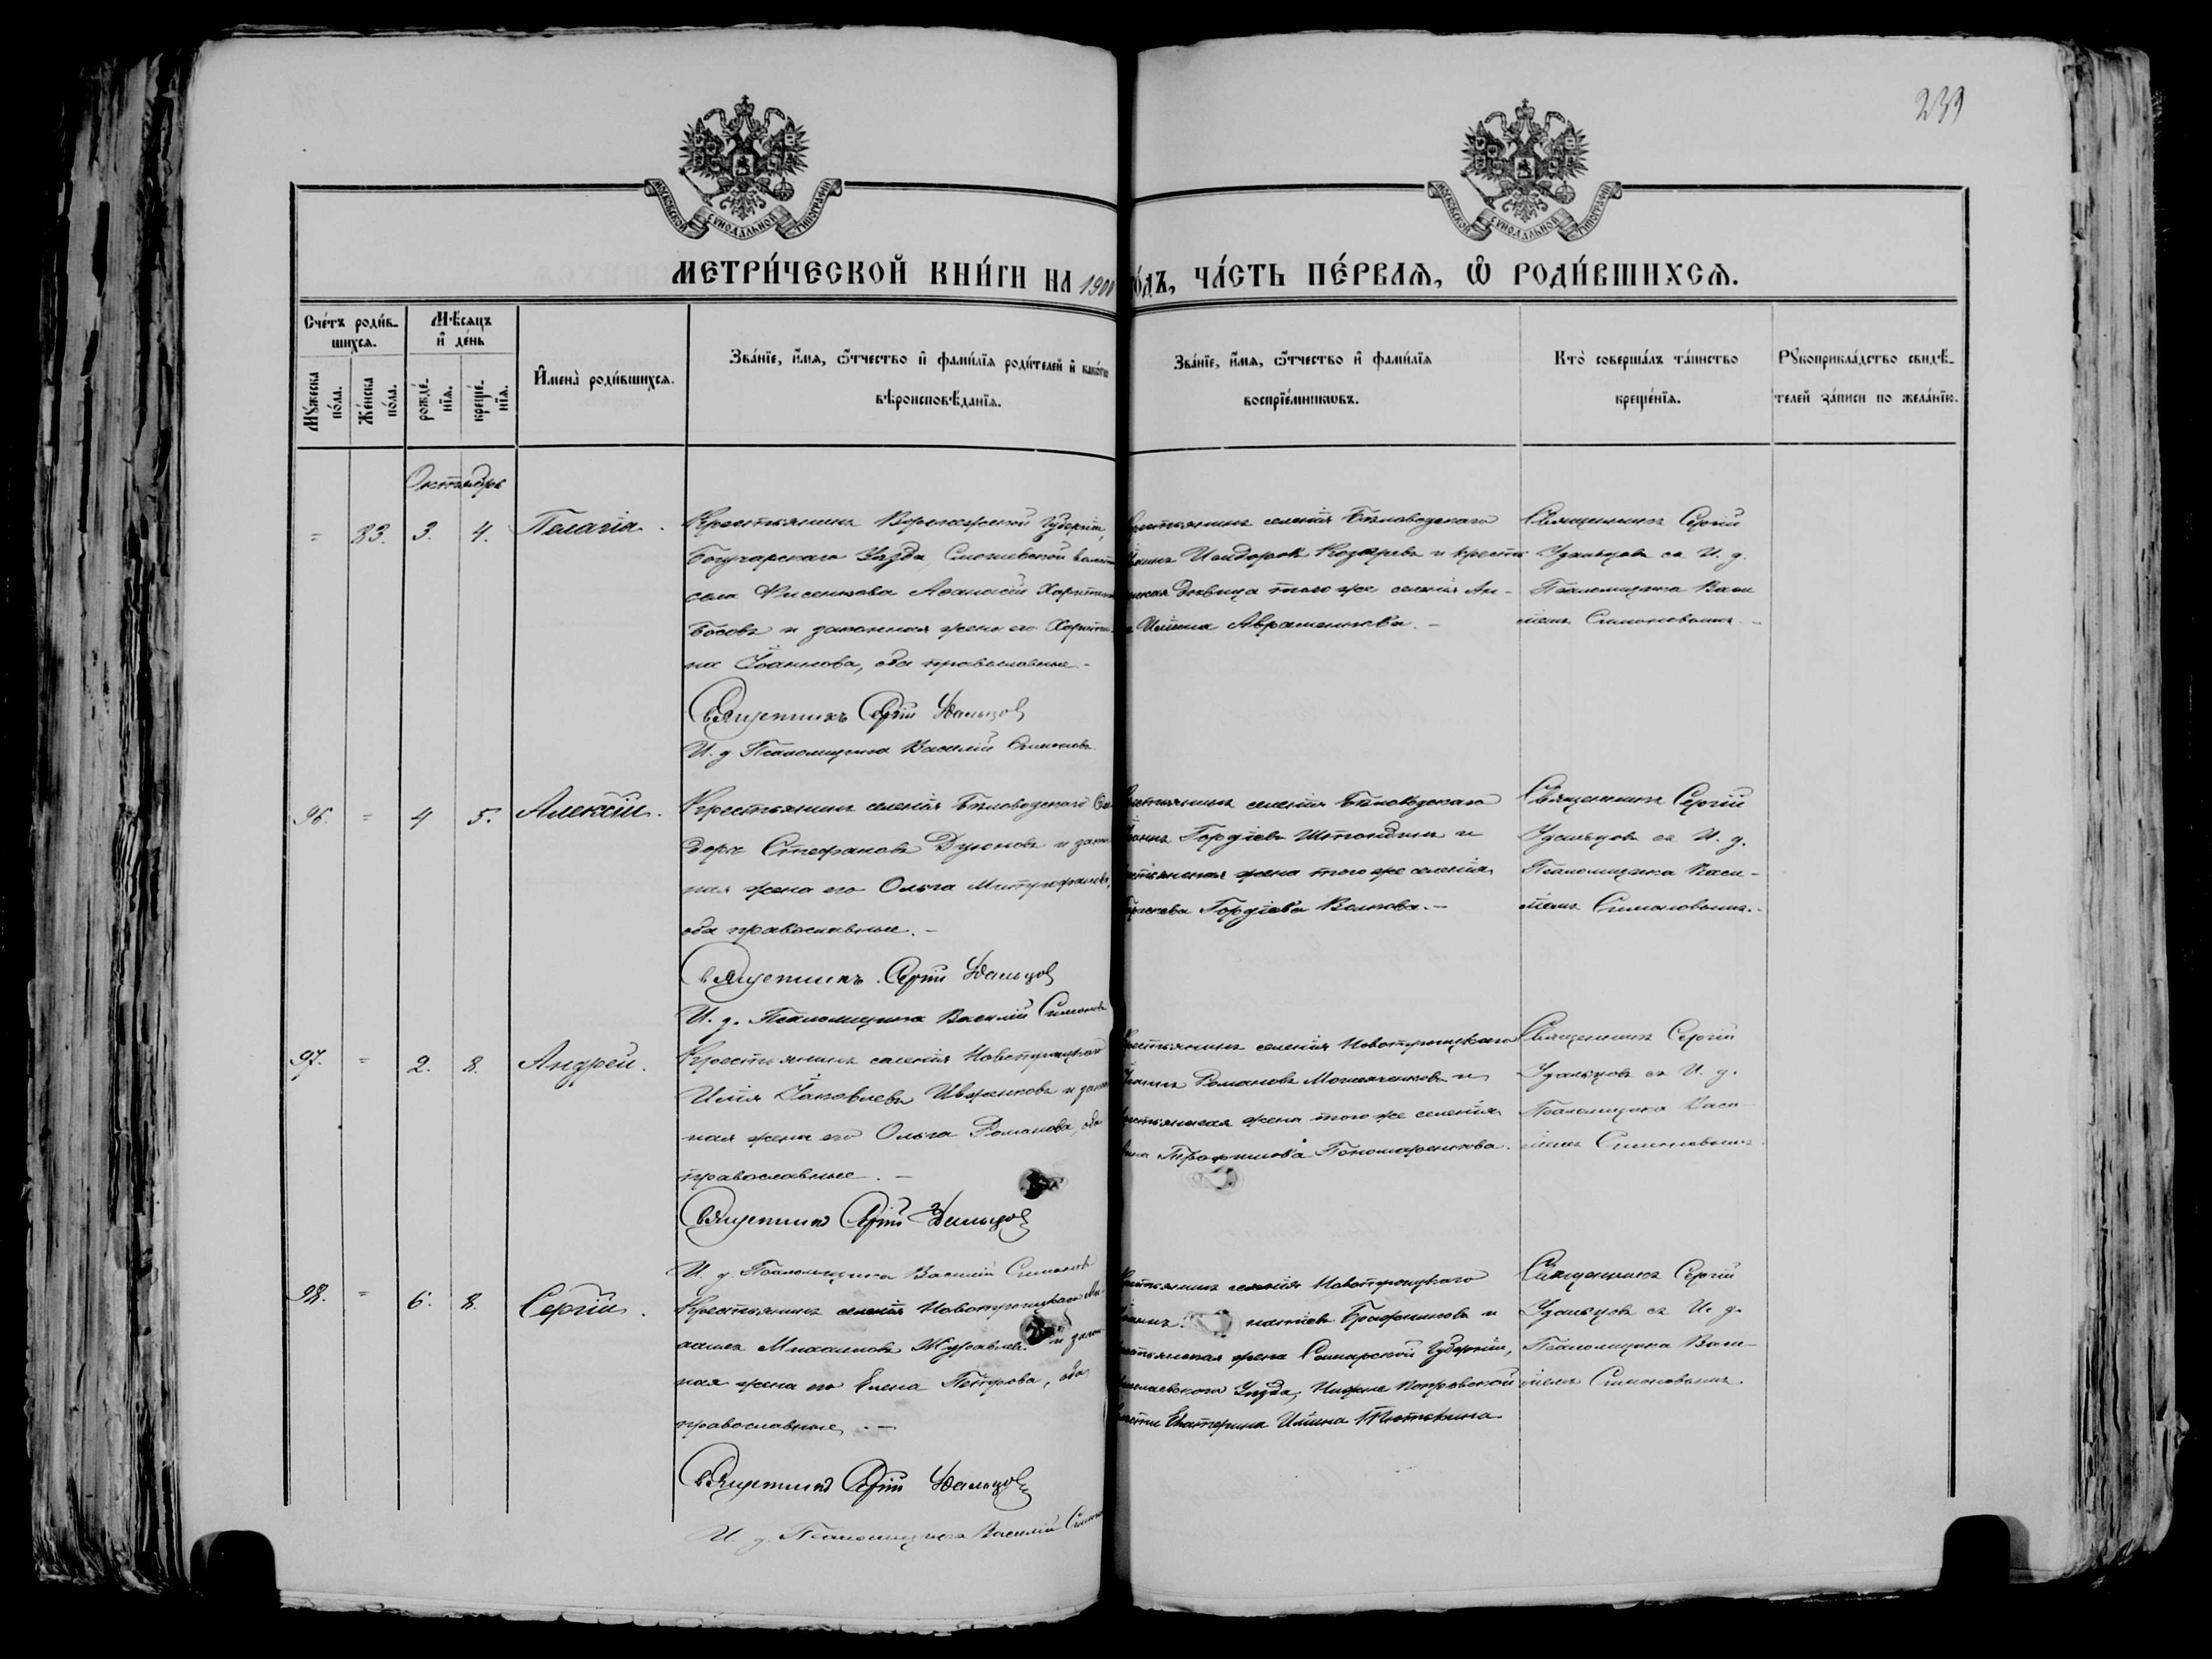 239
МОСКОВСКОЙ СѴНОДАЛЬНОЙ ТИПОГРАФІИ
МОСКОВСКОЙ СѴНОДАЛЬНОЙ ТИПОГРАФІИ
МЕТРИ́ЧЕСКОЙ КНИ́ГИ НА 1900 ГО́ДЪ, ЧА́СТЬ ПЕ́РВАѦ, Ѡ РОДИ́ВШИХСѦ.
Сче́тъ роди́в-
шихсѧ.
Мꙋ́жеска по́ла.
Же́нска по́ла.
Мѣ́сѧцъ и де́нь
рожде́-нїѧ.
креще́-нїѧ.
И҆мена̀ роди́вшихсѧ.
Зва́нїе, и҆́мѧ, ѻ҆́тчество и҆ фами́лїѧ роди́телей и҆ како́гѡ
вѣроисповѣ́данїѧ.
Зва́нїе, и҆́мѧ, ѻ҆́тчество и҆ фами́лїѧ
воспрїе́мникѡвъ.
Кто̀ соверша́лъ та́инство
креще́нїѧ.
Рꙋкоприкла́дство свидѣ́-
телей за́писи по жела́нїю.
Октябрь
= 83. 3. 4. Пелагія.
Крестьянинъ Воронежской Губерніи,
Богучарскаго Уѣзда,
села Фисенкова Аѳанасій
Босовъ и законная жена его
на Іоаннова, оба православные.-
Священникъ Сергій Удальцов
И. д. Псаломщика Василій Симоновъ.
Крестьянинъ селенія Бѣловодскаго
Исидоровъ Козыревъ и крестья
нская дѣвица того же селенія Ан-
на Ильина Авраменкова. -
Священникъ Сергій
Удальцовъ съ И. д.
Псаломщика Васи
ліемъ Симоновымъ. -
96. = 4 5. Алексій.
Крестьянинъ селенія Бѣловодскаго
доръ Стефановъ и закон
ная жена его Ольга Митрофанова,
оба православные. -
Священникъ. Сергій Удальцов
И. д. Псаломщика Василій Симоновъ
Крестьянинъ селенія Бѣловодскаго
Іоаннъ Гордіевъ и
крестьянская жена того же селенія
Гордіева Волкова. -
Священникъ Сергій
Удальцовъ съ И. д.
Псаломщика Васи-
ліемъ Симоновымъ. -
97. = 2. 8. Андрей.
Крестьянинъ селенія Новотроицкаго
Илія Іаковлевъ Ивженковъ и закон
ная жена его Ольга Романова, оба
православные. -
Священникъ Сергій Удальцов
И. д. Псаломщика Василій Симоновъ
Крестьянинъ селенія Новотроицкаго
Романовъ и
крестьянская жена того же селенія
Трофимова Пономаренкова.
Священникъ Сергій
Удальцовъ съ И. д.
Псаломщика Васи-
ліемъ Симоновымъ.
98. = 6. 8. Сергій.
Крестьянинъ селенія Новотроицкаго Ми-
хаилъ Михаиловъ и закон
ная жена его Елена Петрова, оба
православные. -
Священникъ Сергій Удальцов
И. д. Псаломщика Василій
Крестьянинъ селенія Новотроицкаго
Іоаннъ и
крестьянская жена Самарской Губерніи,
Николаевскаго Уѣзда, Покровской
волости Екатерина Ильина
Священникъ Сергій
Удальцовъ съ И. д.
Псаломщика Васи-
ліемъ Симоновымъ.